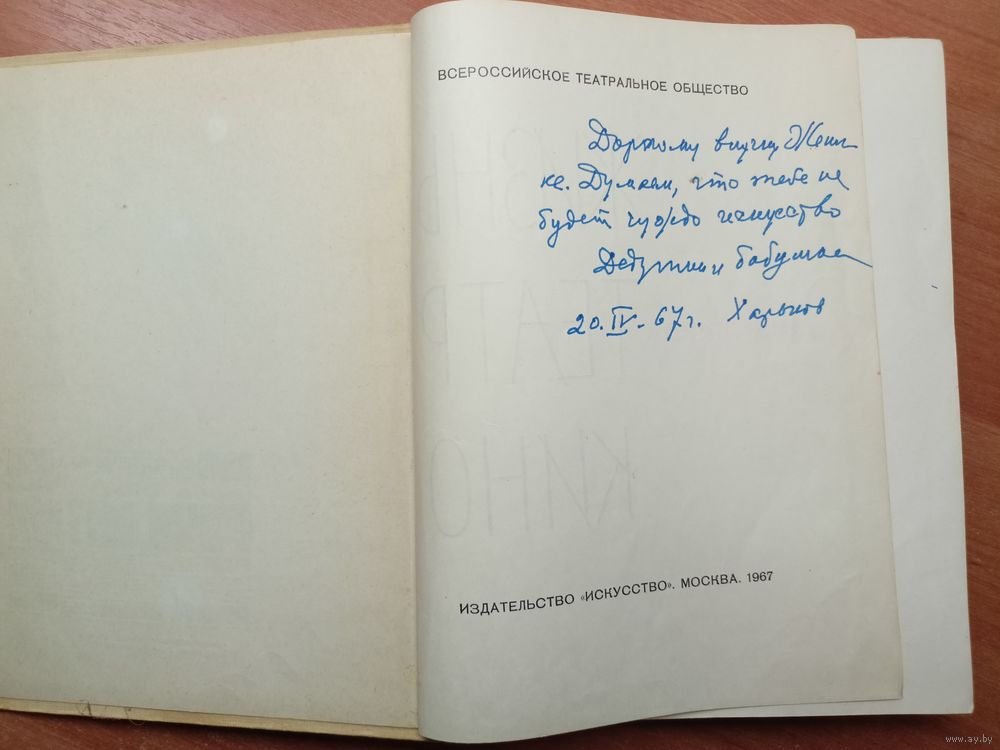 ВСЕРОССИЙСКОЕ ТЕАТРАЛЬНОЕ ОБЩЕСТВО
Дорогому внучку Жень
ке. Думаем, что тебе не
будет чуждо искусство
Дедушка и бабушка
20.IV.67г. Харьков
ТЕАТР
КИНО
ИЗДАТЕЛЬСТВО «ИСКУССТВО». МОСКВА. 1967
www.ay.by